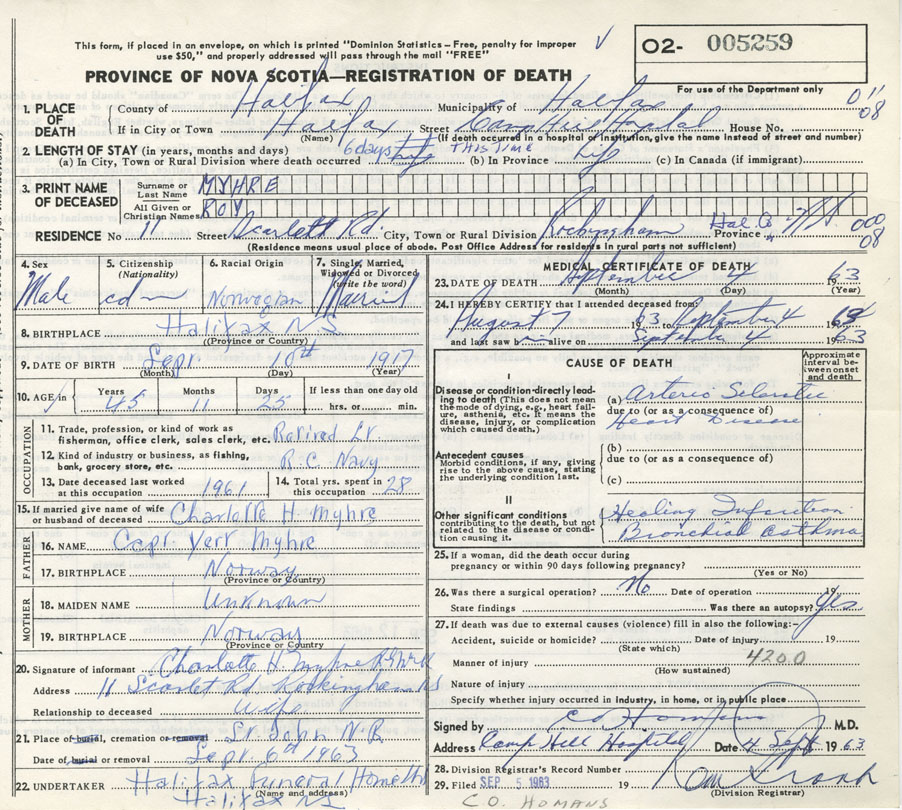 This form, if placed in an envelope, on which is printed "Dominion Statistics – Free, penalty for improper
use $50," and properly addressed will pass through the mail "FREE"
O2- 005259
For use of the Department only
PROVINCE OF NOVA SCOTIA—REGISTRATION OF DEATH
1. PLACE OF DEATH County of Halifax Municipality of Halifax 011
If in City or Town Halifax Street Camp Hill Hospital House No. 08
(Name) (If death occurred in a hospital or institution, give the name instead of street and number)
2. LENGTH OF STAY (in years, months and days) 6 days THIS TIME Life
(a) In City, Town or Rural Division where death occurred (b) In Province (c) In Canada (if immigrant)
3. PRINT NAME OF DECEASED Surname or Last Name MYHRE
All Given or Christian Names ROY
RESIDENCE No 11 Street Scarlett Rd. City, Town or Rural Division Rockingham Province Hal Co N.S. 000 08
(Residence means usual place of abode. Post Office Address for residents in rural parts not sufficient)
4. Sex Male
5. Citizenship (Nationality) cdn
6. Racial Origin Norwegian
7. Single, Married, Widowed or Divorced (write the word) Married
8. BIRTHPLACE Halifax NS
(Province or Country)
9. DATE OF BIRTH Sept. 10th 1917
(Month) (Day) (Year)
10. AGE in Years 45 Months 11 Days 25 If less than one day old hrs. or min.
OCCUPATION
11. Trade, profession, or kind of work as fisherman, office clerk, sales clerk, etc. Retired Lt
12. Kind of industry or business, as fishing, bank, grocery store, etc. R.C. Navy
13. Date deceased last worked at this occupation 1961
14. Total yrs. spent in this occupation 28
15. If married give name of wife or husband of deceased Charlotte H. Myhre
FATHER
16. NAME Capt Vert Myhre
17. BIRTHPLACE Norway
(Province or Country)
MOTHER
18. MAIDEN NAME Unknown
19. BIRTHPLACE Norway
(Province or Country)
20. Signature of informant Charlotte H Myhre
Address 11 Scarlet Rd. Rockingham NS
Relationship to deceased Wife
21. Place of burial, cremation or removal St. John N.B.
Date of burial or removal Sept. 6th 1963
22. UNDERTAKER Halifax Funeral Home Ltd
(Name and address)
Halifax NS
MEDICAL CERTIFICATE OF DEATH
23. DATE OF DEATH September 4 1963
(Month) (Day) (Year)
24. I HEREBY CERTIFY that I attended deceased from:
August 7 1963 to September 4 1963
and last saw him alive on September 4 1963
CAUSE OF DEATH
Approximate interval between onset and death
I
Disease or condition directly leading to death (This does not mean the mode of dying, e.g., heart failure, asthenia, etc. It means the disease, injury, or complication which caused death.)
(a) Arterio Sclerotic
due to (or as a consequence of)
Heart Disease
Antecedent causes
Morbid conditions, if any, giving rise to the above cause, stating the underlying condition last.
(b)
due to (or as a consequence of)
(c)
II
Other significant conditions contributing to the death, but not related to the disease or condition causing it.
Healing Infarction
Bronchial Asthma
25. If a woman, did the death occur during
pregnancy or within 90 days following pregnancy?
(Yes or No)
26. Was there a surgical operation? No Date of operation 19
State findings Was there an autopsy? Yes
27. If death was due to external causes (violence) fill in also the following:–
Accident, suicide or homicide? Date of injury 19
(State which)
Manner of injury 4200
(How sustained)
Nature of injury
Specify whether injury occurred in industry, in home, or in public place
Signed by C O Homans M.D.
Address Camp Hill Hospital Date 4 Sept 1963
28. Division Registrar's Record Number
29. Filed SEP 5 1963 19
(Division Registrar)
C.O. HOMANS